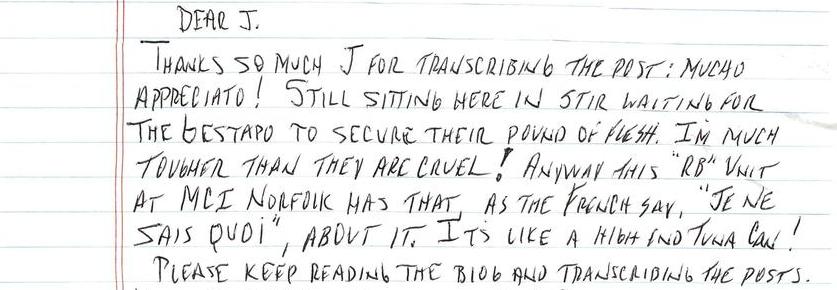 DEAR J.
THANKS SO MUCH J FOR TRANSCRIBING THE POST: MUCHO
APPRECIATO! STILL SITTING HERE IN STIR WAITING FOR
THE GESTAPO TO SECURE THEIR POUND OF FLESH. I'M MUCH
TOUGHER THAN THEY ARE CRUEL! ANYWAY THIS "RB" UNIT
AT MCI NORFOLK HAS THAT, AS THE FRENCH SAY, "JE NE
SAIS QUOI", ABOUT IT. IT'S LIKE A HIGH END TUNA CAN!
PLEASE KEEP READING THE BLOG AND TRANSCRIBING THE POSTS.